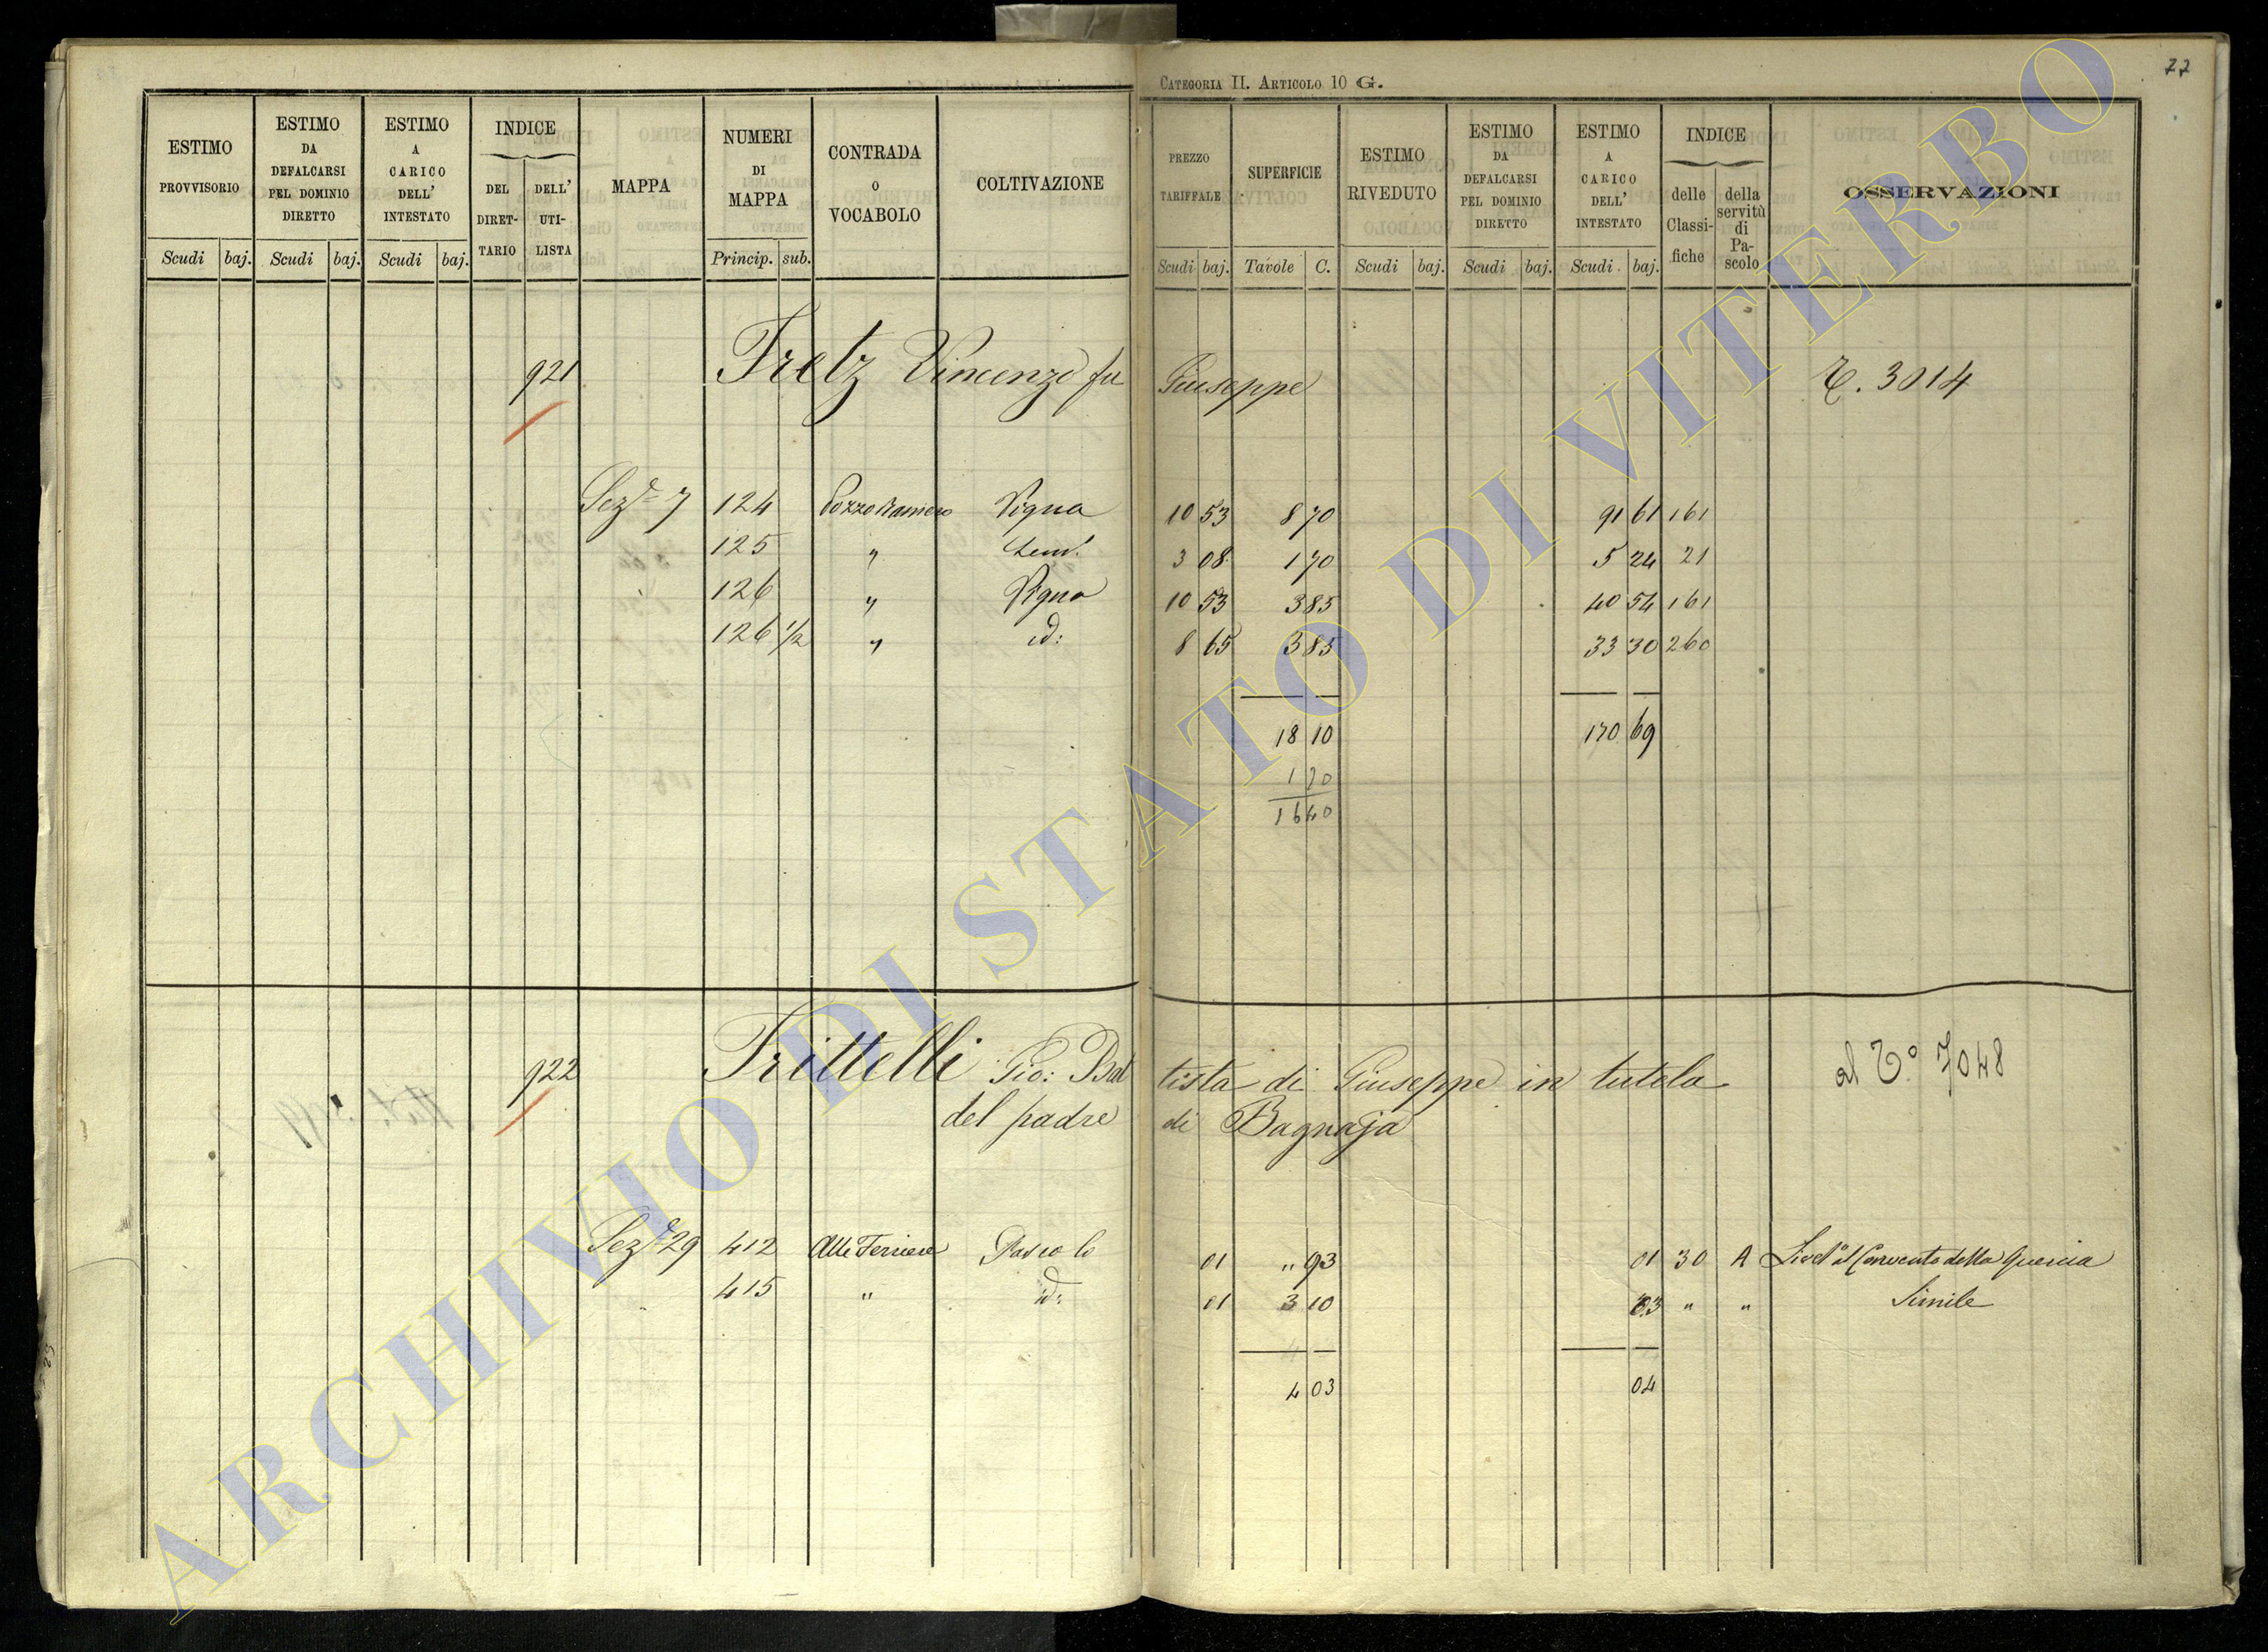 77
CATEGORIA II. ARTICOLO 10 G.
ESTIMO PROVVISORIO Scudi baj.
ESTIMO DA DEFALCARSI PEL DOMINIO DIRETTO Scudi baj.
ESTIMO A CARICO DELL' INTESTATO Scudi baj.
INDICE DEL DIRETTARIO DELL' UTILISTA
MAPPA
NUMERI DI MAPPA Princip. sub.
CONTRADA O VOCABOLO
COLTIVAZIONE
PREZZO TARIFFALE Scudi baj.
SUPERFICIE Tavole C.
ESTIMO RIVEDUTO Scudi baj.
ESTIMO DA DEFALCARSI PEL DOMINIO DIRETTO Scudi baj.
ESTIMO A CARICO DELL' INTESTATO Scudi baj.
INDICE delle Classifiche della servitù di Pascolo
OSSERVAZIONI
921 Fretz Vincenzo fu Giuseppe 3014
Sez.e 7 124 Pozzo Raniero Vigna 10 53 8 70 91 61 161
125 " Sem. 3 08 1 70 5 24 21
126 " Vigna 10 53 3 85 40 54 161
126 1/2 " id: 8 65 3 85 33 30 260
18 10 170 69
1 70
16 40
922 Frittelli Gio: Bat tista di Giuseppe in tutela al T.o 7048
del padre di Bagnaja
Sez.e 29 412 Alle Ferriere Pascolo 01 " 93 01 30 A Livell.o al Convento della Quercia
415 " id: 01 3 10 03 " " Simile
4 03 04
ARCHIVIO DI STATO DI VITERBO